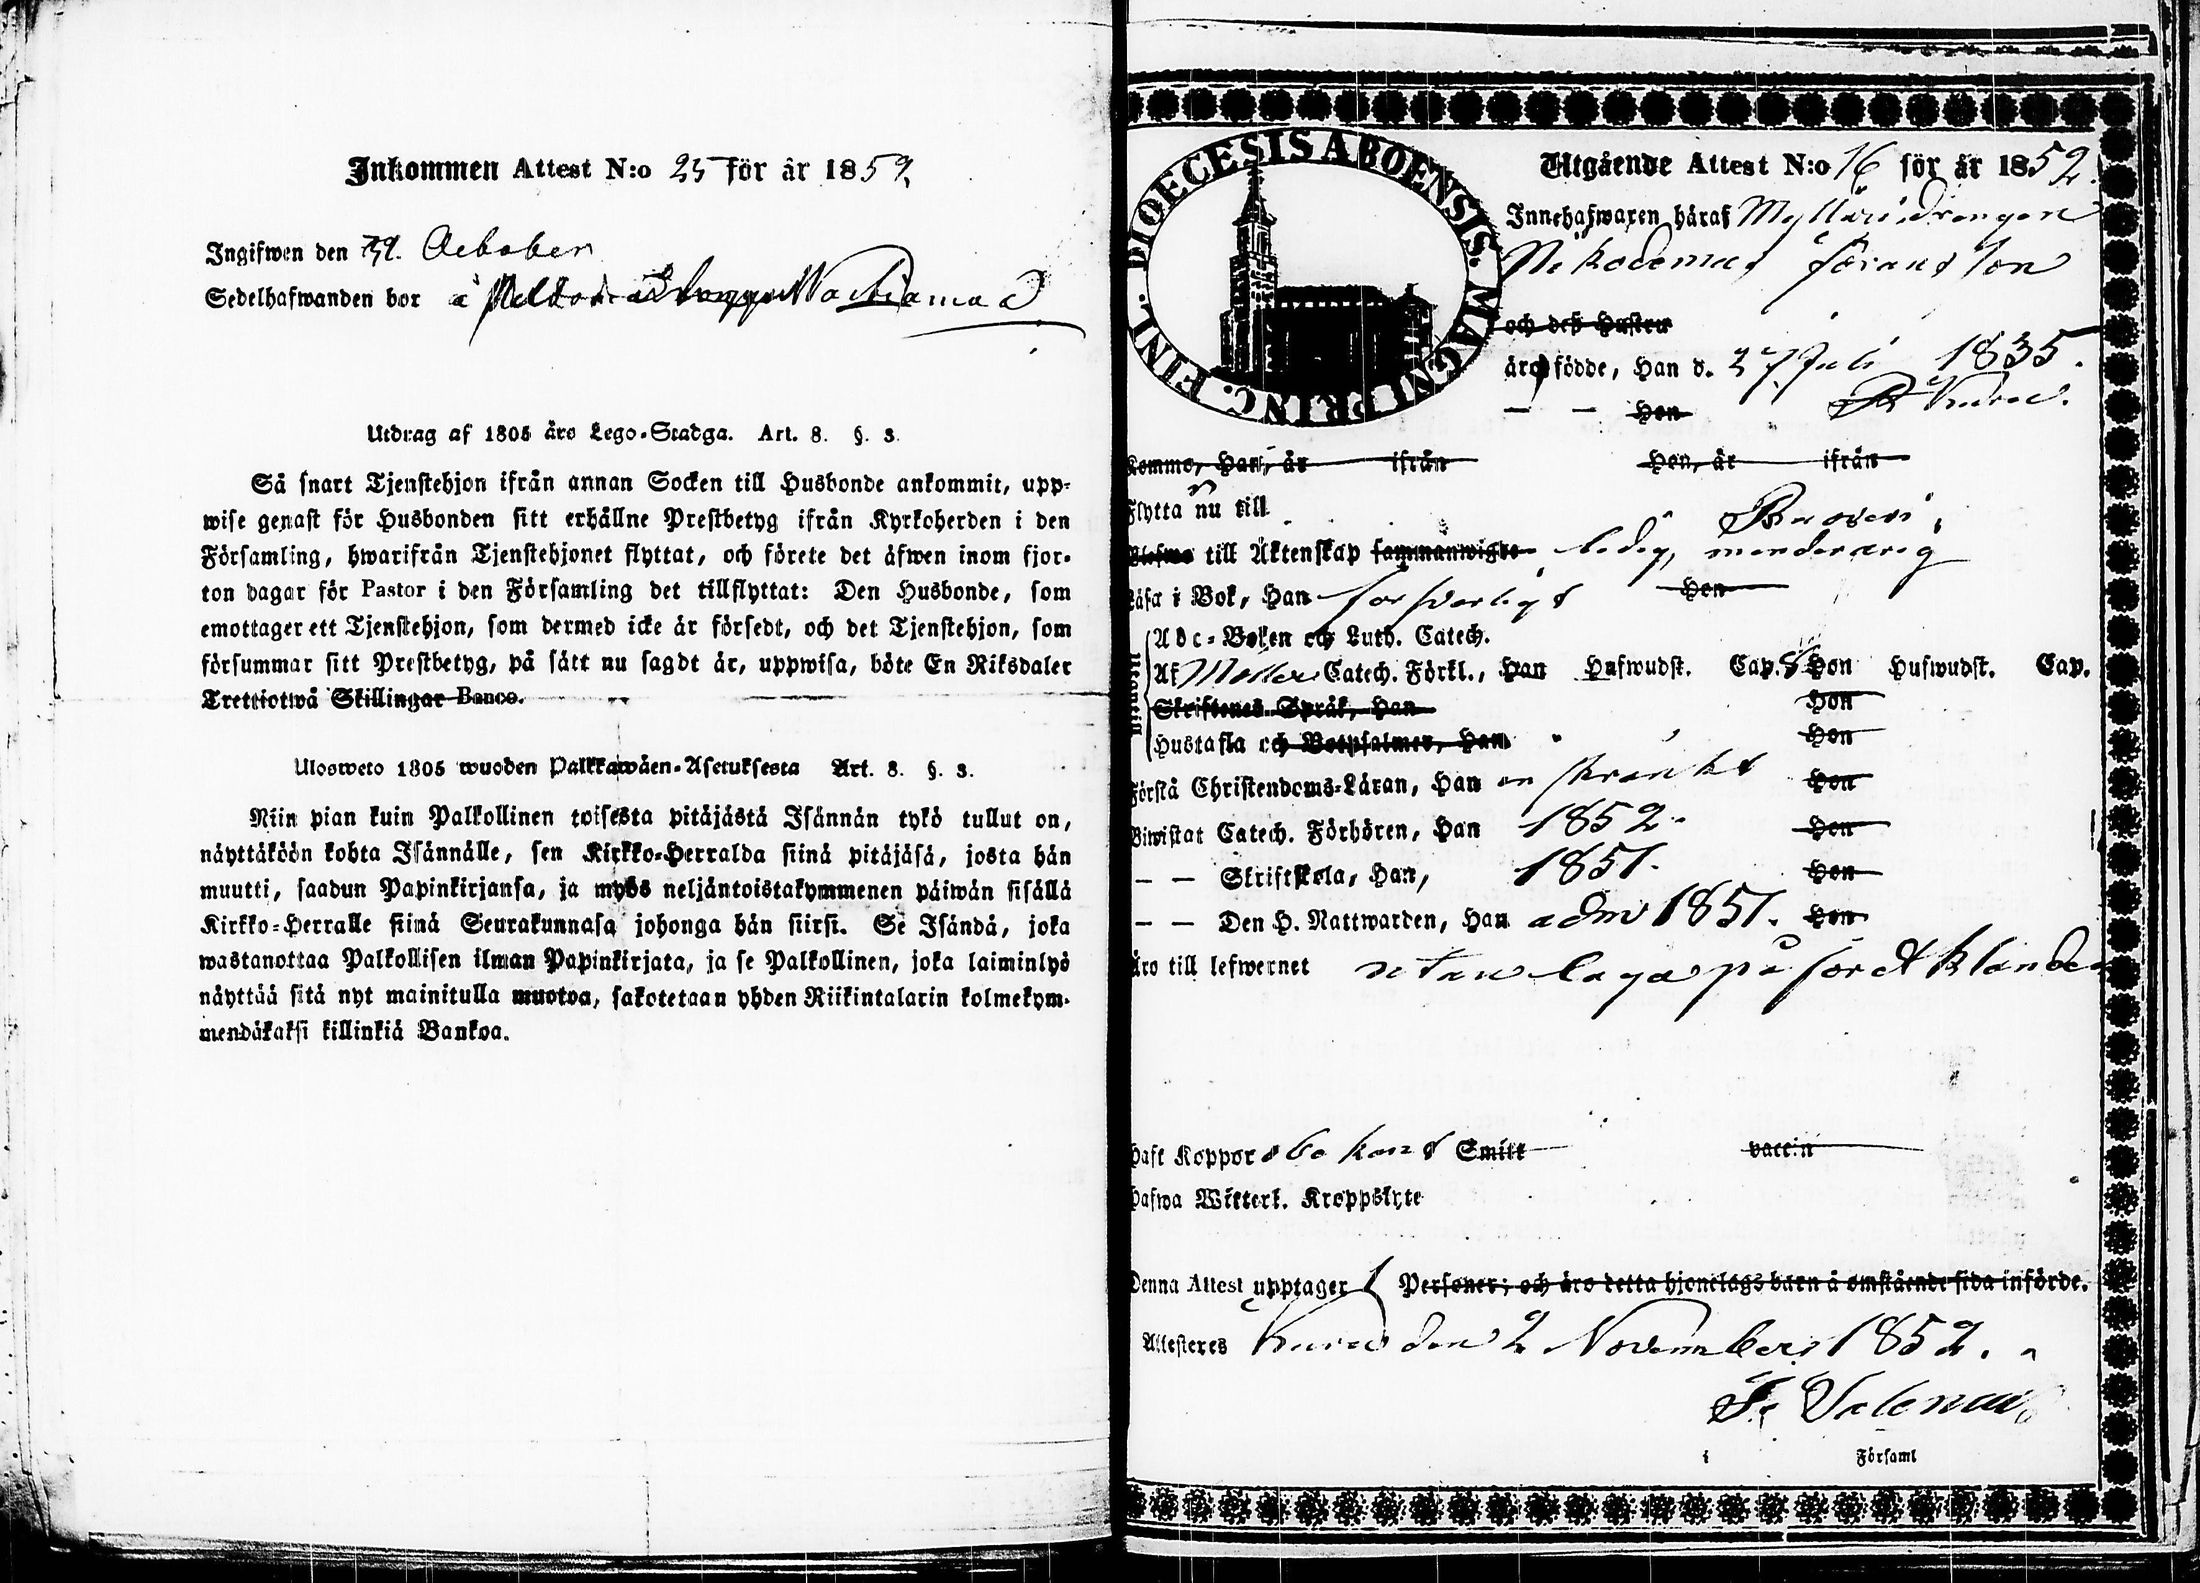 Inkommen Attest N:o 25 för år 1859.
Ingifwen den October
Sedelhafwanden bor å
Utdrag af 1805 års Lego-Stadga. Art. 8. §. 3.
Så snart Tjenstehjon ifrån annan Socken till Husbonde ankommit, upp-
wise genast för Husbonden sitt erhållne Prestbetyg ifrån Kyrkoherden i den
Församling, hwarifrån Tjenstehjonet flyttat, och förete det äfwen inom fjor-
ton dagar för Pastor i den Församling det tillflyttat: Den Husbonde, som
emottager ett Tjenstehjon, som dermed icke är försedt, och det Tjenstehjon, som
försummar sitt Prestbetyg, på sätt nu sagdt är, uppwisa, böte En Riksdaler
Trettiotwå Skillingar Banco.
Ulosweto 1805 wuoden Palkkawäen-Asetuksesta Art. 8. §. 3.
Niin pian kuin Palkollinen toisesta pitäjästä Isännän tykö tullut on,
näyttäköön kohta Isännälle, sen Kirkko-Herralda siinä pitäjäsä, josta hän
muutti, saadun Papinkirjansa, ja myös neljäntoistakymmenen päiwän sisällä
Kirkko-Herralle siinä Seurakunnasa johonga hän siirsi. Se Isändä, joka
wastanottaa Palkollisen ilman Papinkirjata, ja se Palkollinen, joka laiminlyö
näyttää sitä nyt mainitulla muotoa, sakotetaan yhden Riikintalarin kolmekym-
mendäkaksi killinkiä Bankoa.
DIOECESIS ABOENSIS. MAGNI PRINC. FINL.
Utgående Attest N:o 16 för år 1852.
Innehafwaren häraf Mylläri drengen
Nikodemus
och deß Hustru
äro födde, Han d. 27 Juli 1835.
— — Hon
Komme, Han, är ifrån Hon, är ifrån
Flytta nu till
till Äktenskap sammanwigde ledig, minderårig
Läsa i Bok, Han försvarligt Hon
Utantill
Abc-Boken och Luth. Catech.
Af Möllers Catech. Förkl., Han Hufwudst. Cap. Hon Hufwudst. Cap.
Skriftenes Språk, Han Hon
Hustafla och Botpsalmer, Han Hon
Förstå Christendoms-Läran, Han inskränkt Hon
Biwistat Catech. Förhören, Han 1852. Hon
— — Skriftskola, Han, 1851. Hon
— — Den H. Nattwarden, Han adm 1851. Hon
Äro till lefwernet utan laga påföredt klander
Haft Koppor obekant Smitt vaccin
Hafwa Witterl. Kroppslyte
Denna Attest upptager 1 Personer; och äro detta hjonelags barn å omstående sida införde.
Attesteres Kuru den 2 November 1852.
i Församl